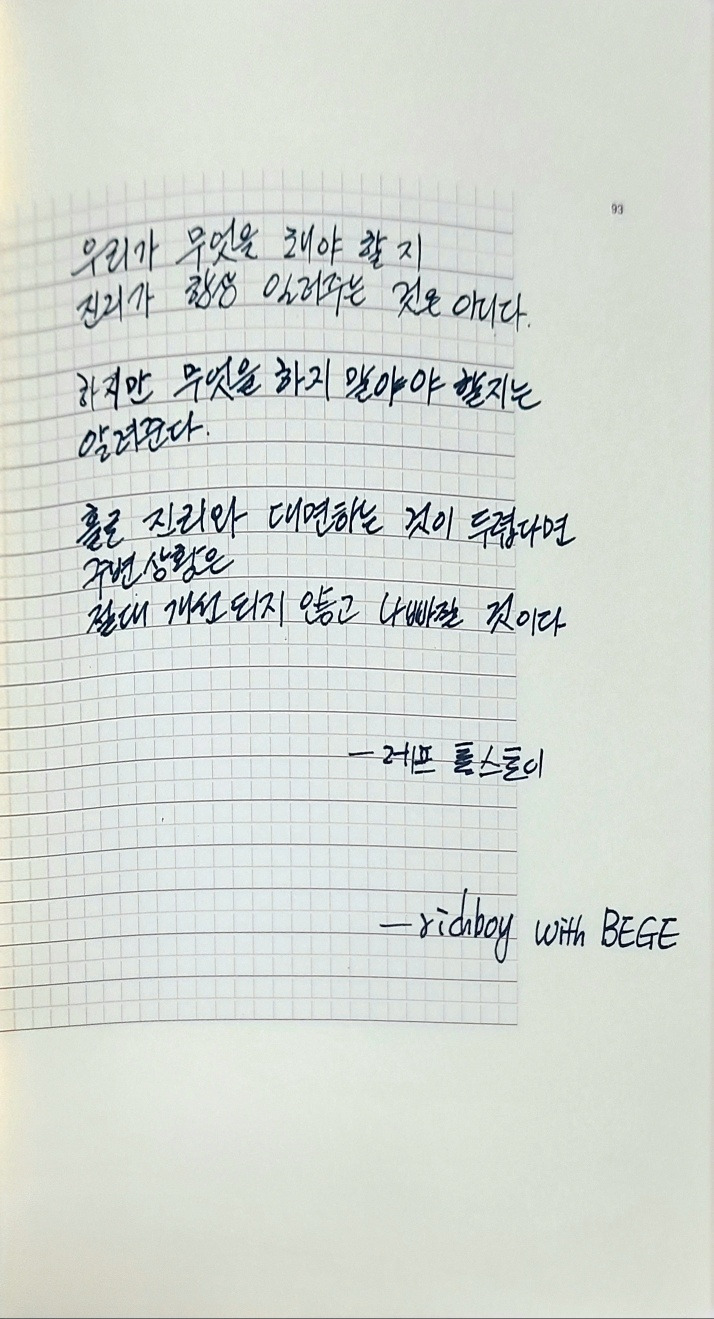 93
우리가 무엇을 해야 할 지
진리가 항상 알려주는 것은 아니다.
하지만 무엇을 하지 말아야 할지는
알려준다.
홀로 진리와 대면하는 것이 두렵다면
주변 상황은
절대 개선되지 않고 나빠질 것이다
— 레프 톨스토이
— richboy with BEGE